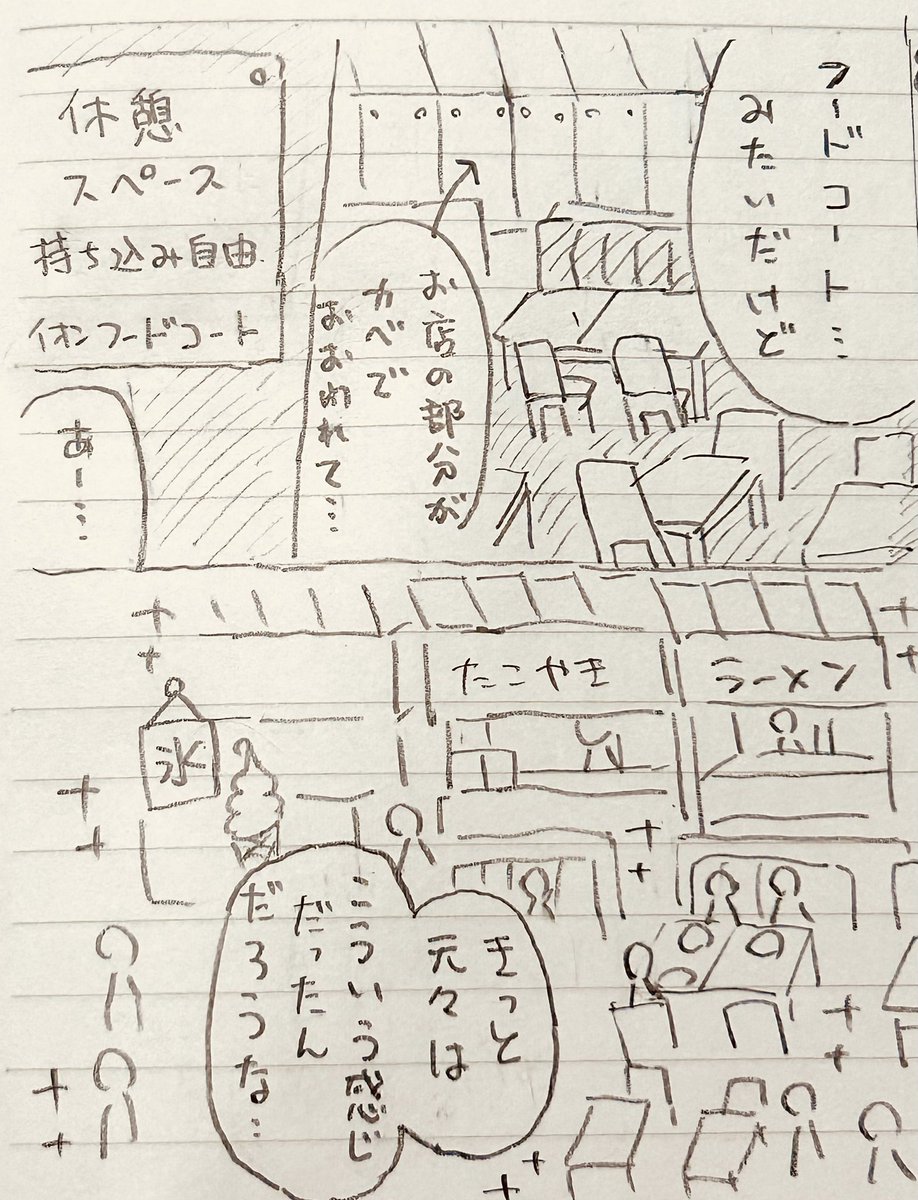 フードコート…
みたいだけど
お店の部分が
カベで
おおわれて…
休憩
スペース
持ち込み自由
イオンフードコート
あー…
ラーメン
たこやき
氷
きっと
元々は
こういう感じ
だったん
だろうな…